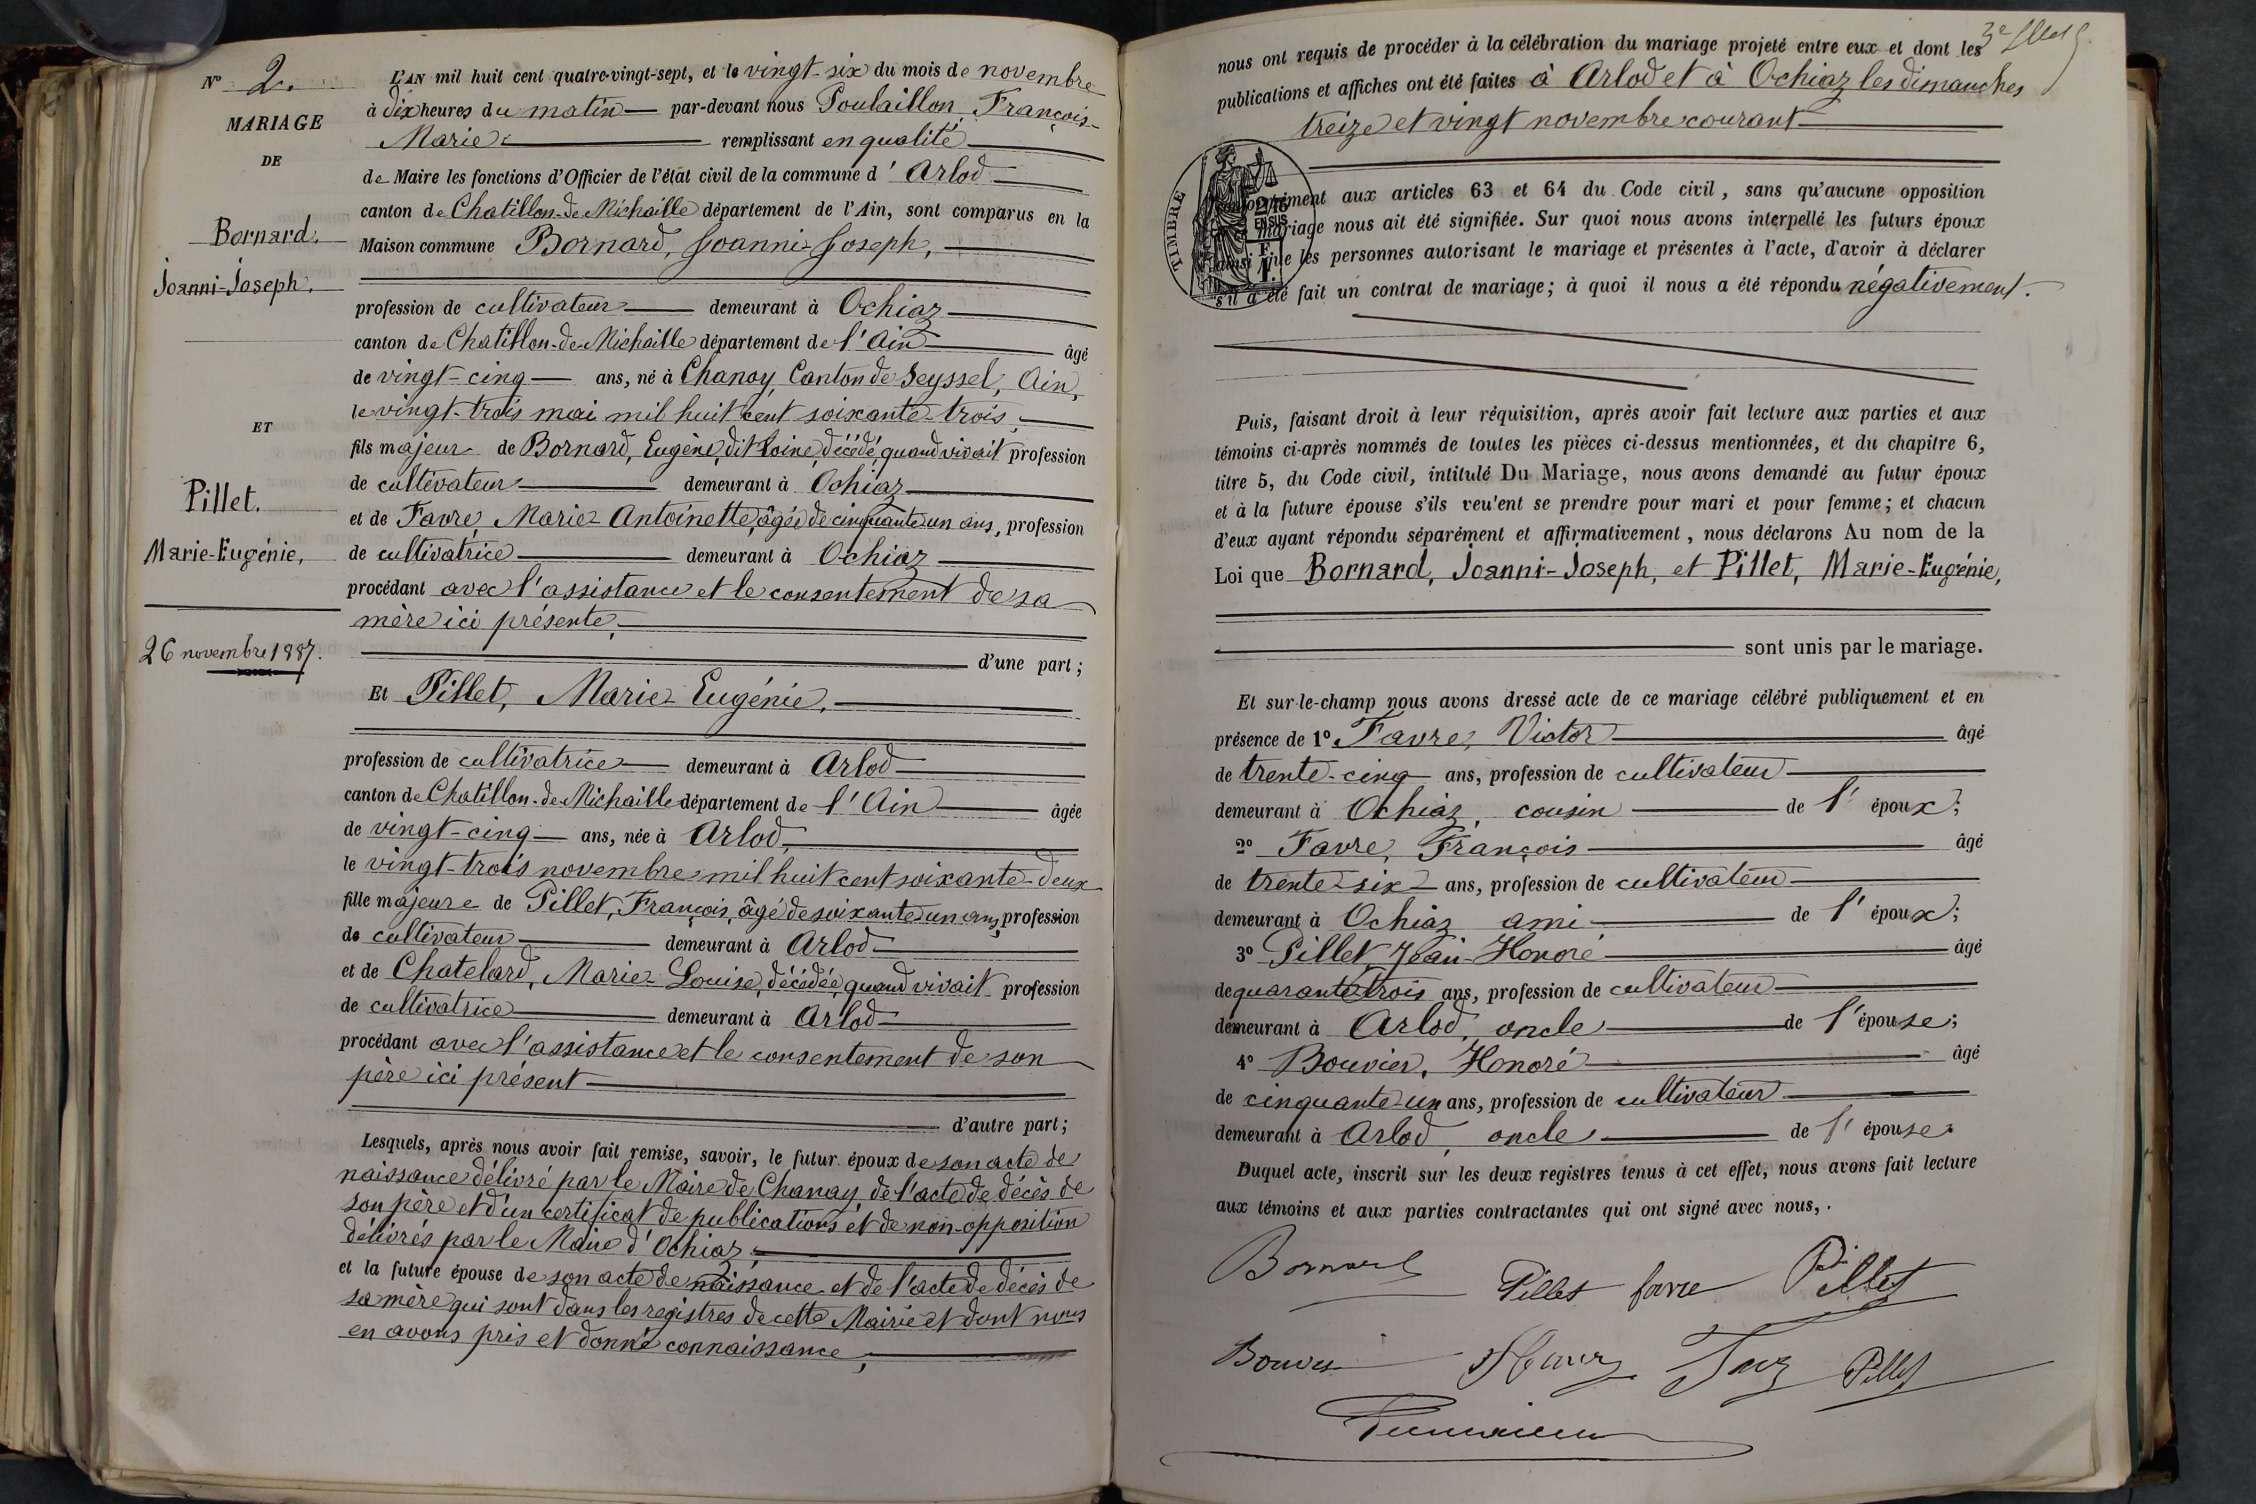 N° 2.
MARIAGE
DE
Bornard,
Joanni-Joseph,
ET
Pillet,
Marie-Eugénie,
26 novembre 1887.
L'AN mil huit cent quatre-vingt-sept, et le vingt-six du mois de novembre
à dix heures du matin par-devant nous Poulaillon, François-
Marie remplissant en qualité
de Maire les fonctions d'Officier de l'état civil de la commune d'Arlod
canton de Chatillon-de-Michaille département de l'Ain, sont comparus en la
Maison commune Bornard, Joanni-Joseph,
profession de cultivateur demeurant à Ochiaz
canton de Chatillon-de-Michaille département de l'Ain âgé
de vingt-cinq ans, né à Chanay, Canton de Seyssel, Ain,
le vingt-trois mai mil huit cent soixante-trois,
fils majeur de Bornard, Eugène, dit Loine, décédé, quand vivait profession
de cultivateur demeurant à Ochiaz
et de Favre, Marie-Antoinette, âgée de cinquante-un ans, profession
de cultivatrice demeurant à Ochiaz
procédant avec l'assistance et le consentement de sa
mère ici présente,
d'une part;
Et Pillet, Marie-Eugénie,
profession de cultivatrice demeurant à Arlod
canton de Chatillon-de-Michaille département de l'Ain âgée
de vingt-cinq ans, née à Arlod,
le vingt-trois novembre mil huit cent soixante-deux
fille majeure de Pillet, François, âgé de soixante-un ans, profession
de cultivateur demeurant à Arlod
et de Chatelard, Marie-Louise, décédée, quand vivait profession
de cultivatrice demeurant à Arlod
procédant avec l'assistance et le consentement de son
père ici présent
d'autre part;
Lesquels, après nous avoir fait remise, savoir, le futur époux de son acte de
naissance délivré par le Maire de Chanay, de l'acte de décès de
son père et d'un certificat de publications et de non-opposition
délivrés par le Maire d'Ochiaz,
et la future épouse de son acte de naissance et de l'acte de décès de
sa mère qui sont dans les registres de cette Mairie et dont nous
en avons pris et donné connaissance,
nous ont requis de procéder à la célébration du mariage projeté entre eux et dont les
publications et affiches ont été faites à Arlod et à Ochiaz les dimanches
treize et vingt novembre courant
TIMBRE
conformément aux articles 63 et 64 du Code civil, sans qu'aucune opposition
au mariage nous ait été signifiée. Sur quoi nous avons interpellé les futurs époux
ainsi que les personnes autorisant le mariage et présentes à l'acte, d'avoir à déclarer
s'il a été fait un contrat de mariage; à quoi il nous a été répondu négativement.
Puis, faisant droit à leur réquisition, après avoir fait lecture aux parties et aux
témoins ci-après nommés de toutes les pièces ci-dessus mentionnées, et du chapitre 6,
titre 5, du Code civil, intitulé Du Mariage, nous avons demandé au futur époux
et à la future épouse s'ils veu'ent se prendre pour mari et pour femme; et chacun
d'eux ayant répondu séparément et affirmativement, nous déclarons Au nom de la
Loi que Bornard, Joanni-Joseph, et Pillet, Marie-Eugénie,
sont unis par le mariage.
Et sur-le-champ nous avons dressé acte de ce mariage célébré publiquement et en
présence de 1° Favre, Victor âgé
de trente-cinq ans, profession de cultivateur
demeurant à Ochiaz, cousin de l'époux;
2° Favre, François âgé
de trente-six ans, profession de cultivateur
demeurant à Ochiaz ami de l'époux;
3° Pillet, Jean-Honoré âgé
de quarante-trois ans, profession de cultivateur
demeurant à Arlod, oncle de l'épouse;
4° Bouvier, Honoré âgé
de cinquante-un ans, profession de cultivateur
demeurant à Arlod, oncle de l'épouse.
Duquel acte, inscrit sur les deux registres tenus à cet effet, nous avons fait lecture
aux témoins et aux parties contractantes qui ont signé avec nous,.
Bornard
Pillet favre Pillet
Pillet